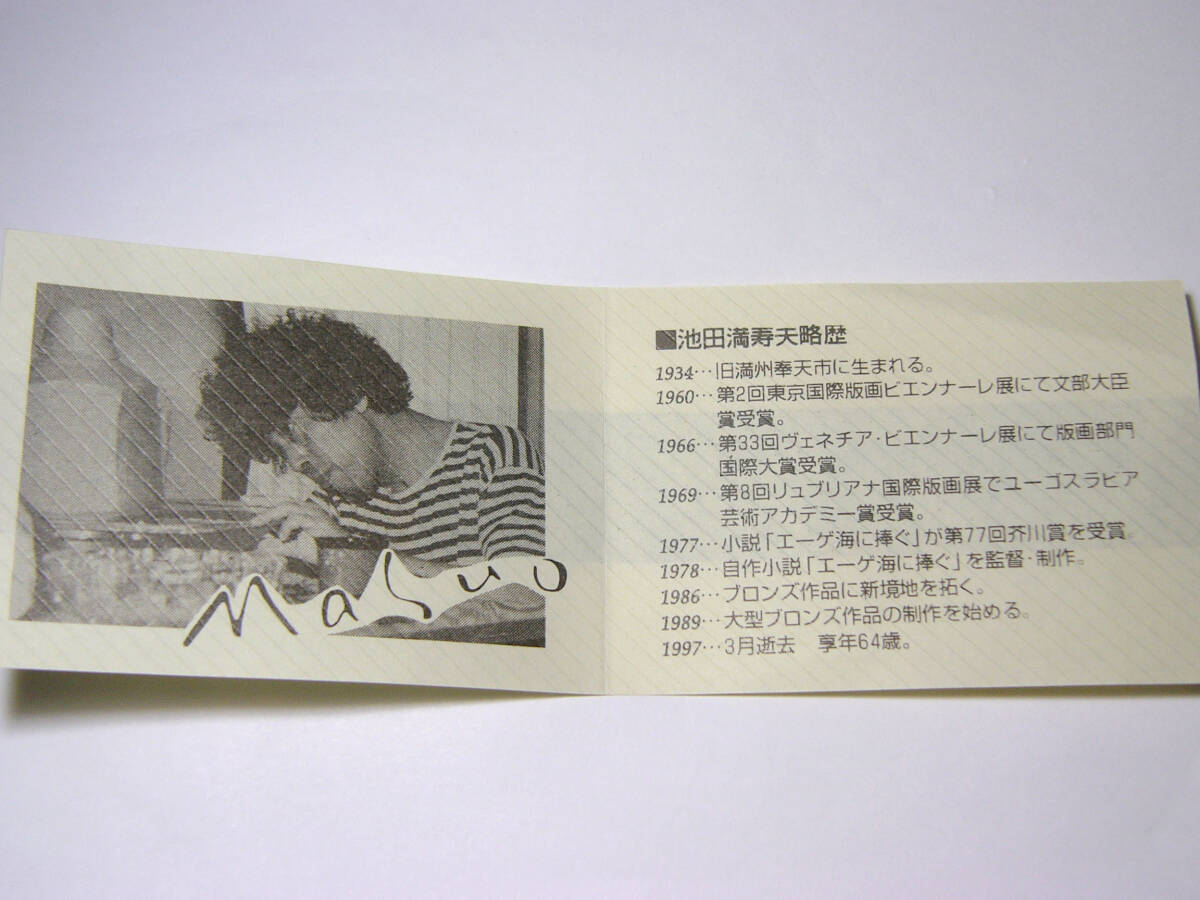 Masuo
■池田満寿夫略歴
1934…旧満州奉天市に生まれる。
1960…第2回東京国際版画ビエンナーレ展にて文部大臣
賞受賞。
1966…第33回ヴェネチア・ビエンナーレ展にて版画部門
国際大賞受賞。
1969…第8回リュブリアナ国際版画展でユーゴスラビア
芸術アカデミー賞受賞。
1977…小説「エーゲ海に捧ぐ」が第77回芥川賞を受賞。
1978…自作小説「エーゲ海に捧ぐ」を監督・制作。
1986…ブロンズ作品に新境地を拓く。
1989…大型ブロンズ作品の制作を始める。
1997…3月逝去　享年64歳。